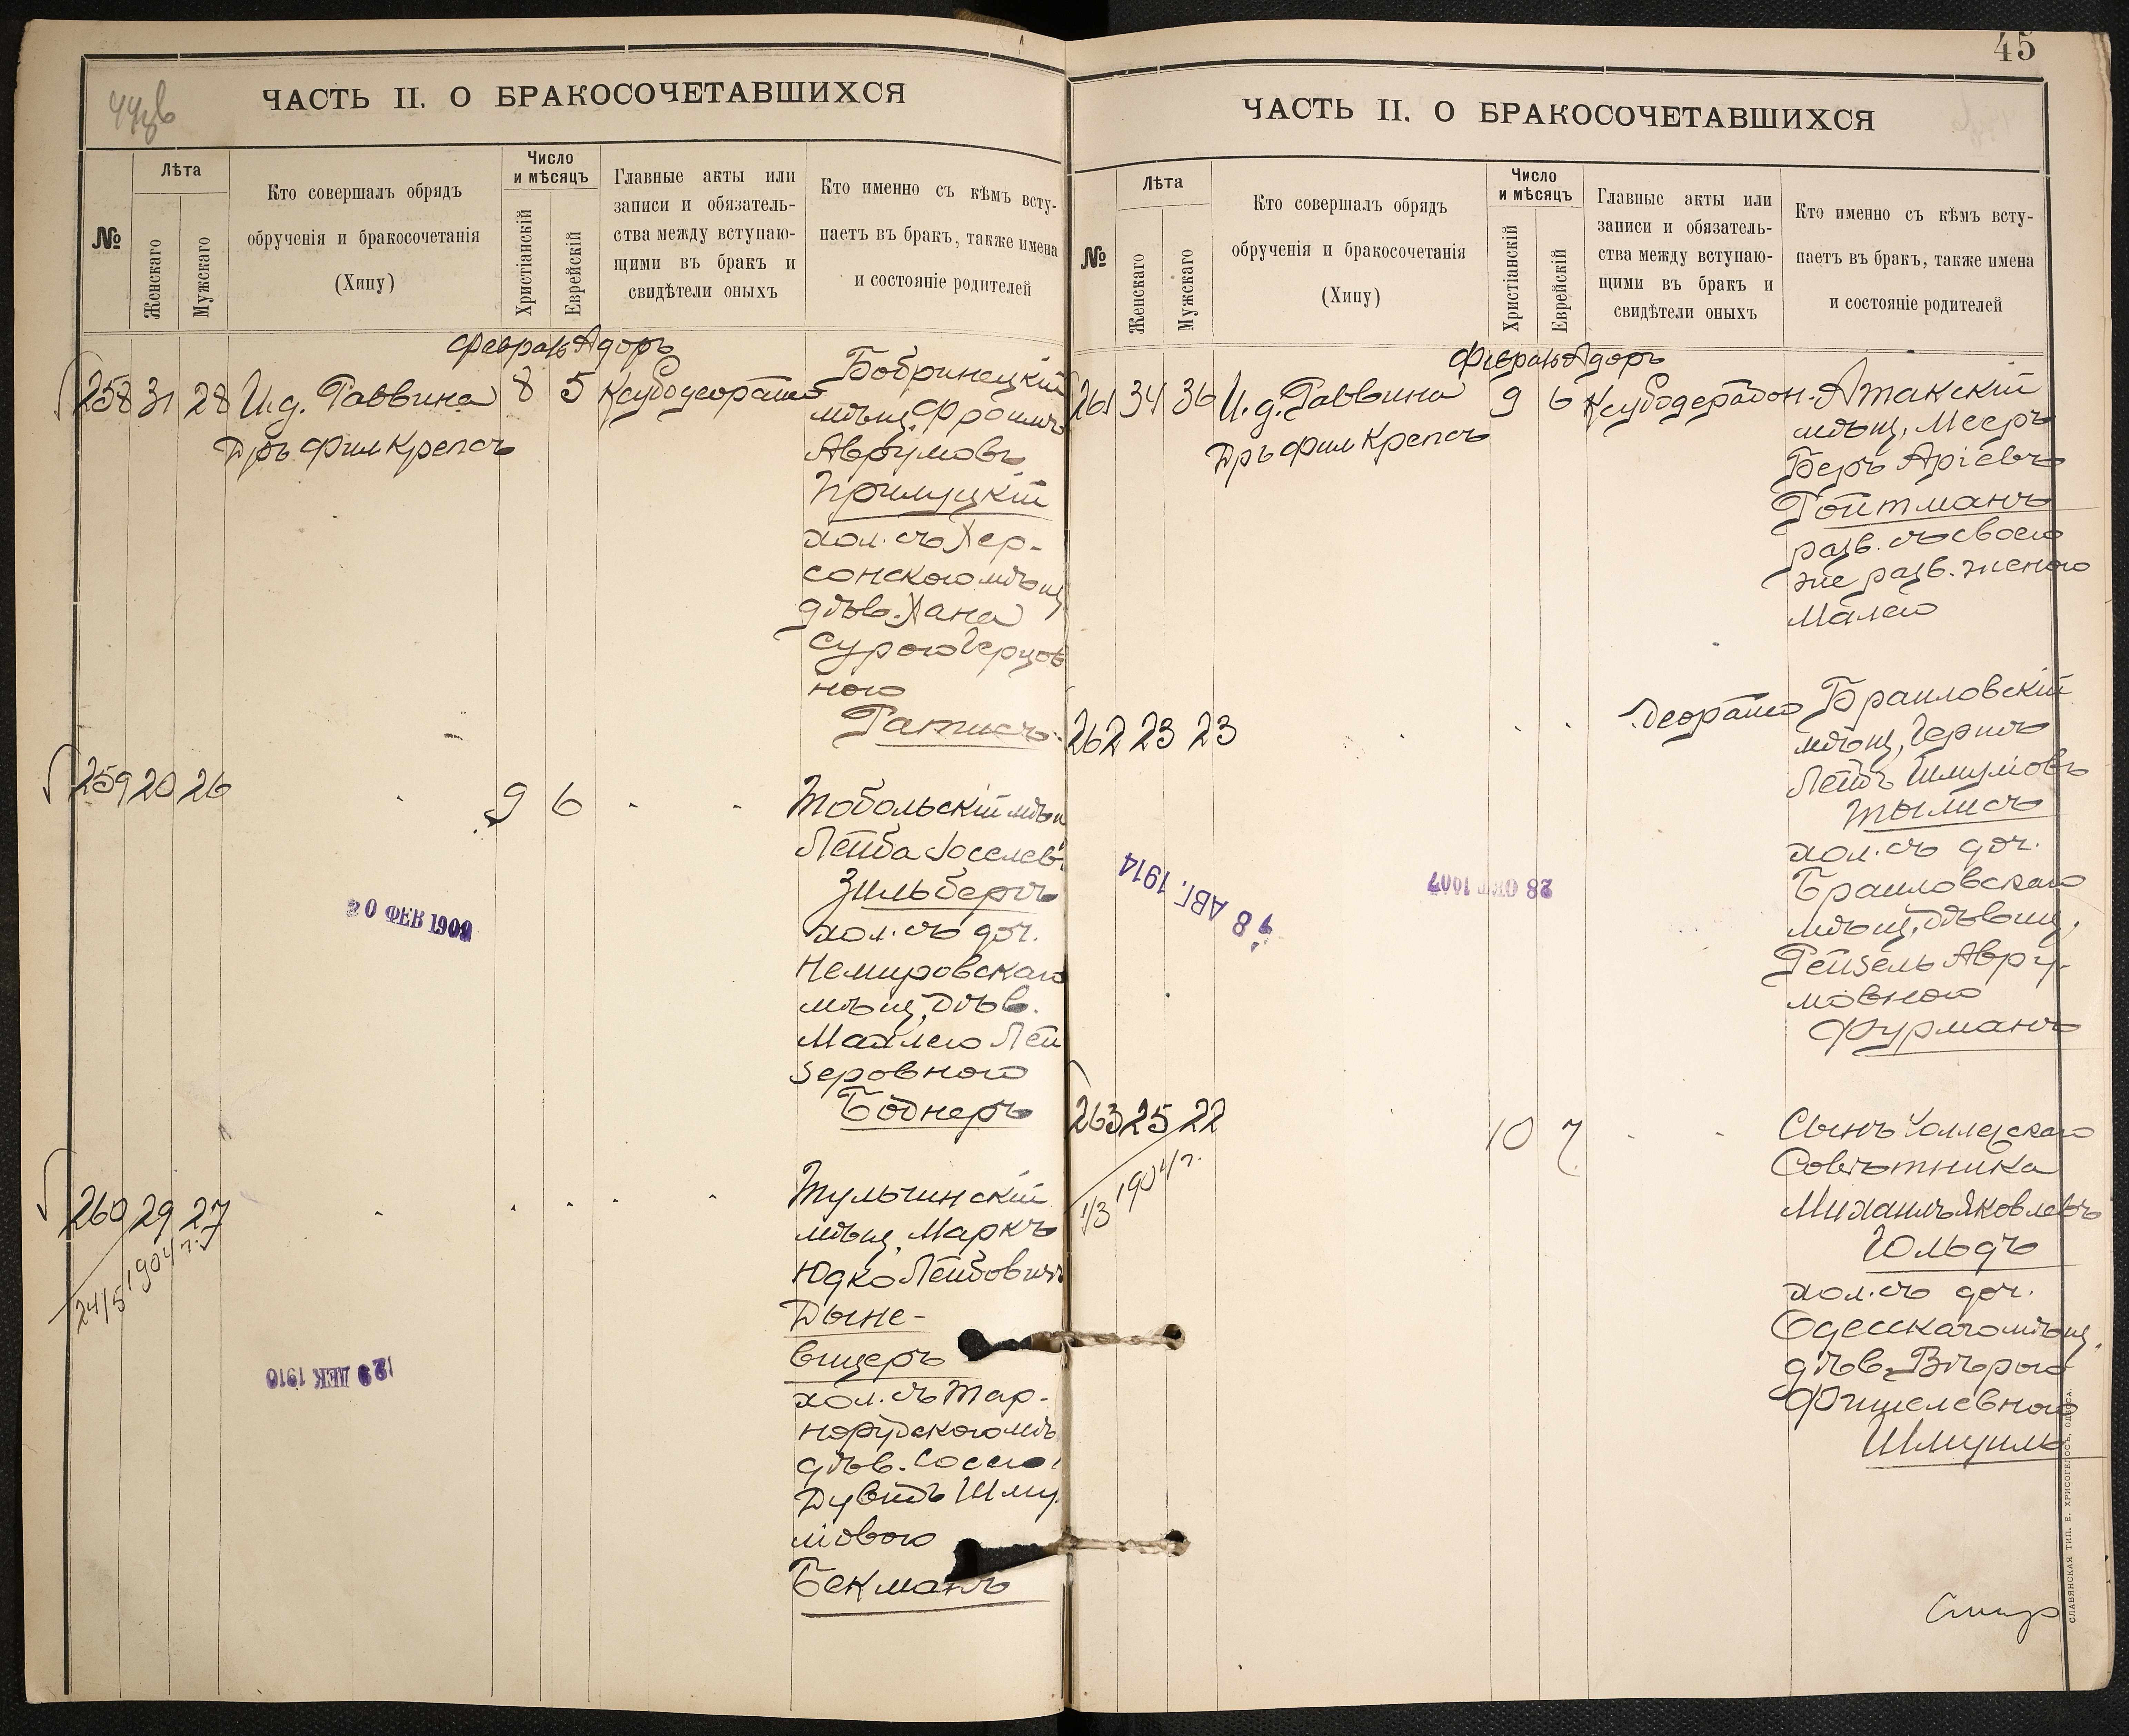 44об
ЧАСТЬ II. О БРАКОСОЧЕТАВШИХСЯ
№
Лѣта
Женскаго
Мужскаго
Кто совершалъ обрядъ
обрученія и бракосочетанія
(Хипу)
Число
и мѣсяцъ
Христіанскій
Еврейскій
Главные акты или
записи и обязатель-
ства между вступаю-
щими въ бракъ и
свидѣтели оныхъ
Кто именно съ кѣмъ всту-
паетъ въ бракъ, также имена
и состояніе родителей
Февраль Адоръ
258 31 28 И.д. Раввина 8 5
Дръ Фил Крепсъ
Бобринецкій
мѣщ. Фроимъ
Аврумовъ
Прилуцкій
хол. съ Хер-
сонскою мѣщ
дѣв. Хана
Сурою Герцов
ною
Ратнсъ
259 20 26 9 6
Тобольскій мѣщ
Лейба Іоселев
Зильберъ
хол. съ доч.
Немировскаго
мѣщ, Дѣв.
Махлею Лей
зеровною
Боднеръ
20 ФЕВ 1909
260 29 27
24/5 1904 г.
Тульчинскій
мѣщ, Маркъ
Юдко Лейбовичъ
Дыне-
вицеръ
хол. съ Тар-
норудскою мѣ
дѣв. Соссю
Дувидъ Шму
ліовою
Бекманъ
29 ДЕК 1910
45
ЧАСТЬ II. О БРАКОСОЧЕТАВШИХСЯ
№
Лѣта
Женскаго
Мужскаго
Кто совершалъ обрядъ
обрученія и бракосочетанія
(Хипу)
Число
и мѣсяцъ
Христіанскій
Еврейскій
Главные акты или
записи и обязатель-
ства между вступаю-
щими въ бракъ и
свидѣтели оныхъ
Кто именно съ кѣмъ всту-
паетъ въ бракъ, также имена
и состояніе родителей
Февраль Адоръ
261 34 36 И.д. Раввина 9 6
Дръ Фил Крепсъ
Атакскій
мѣщ, Мееръ
Беръ Аріевъ
Ройтманъ
разв. съ своею
же разв. женою
Малею
262 23 23
Браиловскій
мѣщ, Гершъ
Лейбъ Шмуліовъ
Тылисъ
хол. съ доч.
Браиловскаго
мѣщ, Дѣвиц,
Рейзель Авру-
мовною
Фурманъ
8 АВГ. 1914
28 ОКТ 1907
263 25 22 10 7
1/3 1904 г.
Сынъ Коллежскаго
Совѣтника
Михаилъ Яковлевъ
Гольдъ
хол. съ доч.
Одесскаго мѣщ,
дѣв. Вѣрою
Фишелевною
Шмуилъ
СЛАВЯНСКАЯ ТИП. Е. ХРИСОГЕЛОСЪ, ОДЕССА.